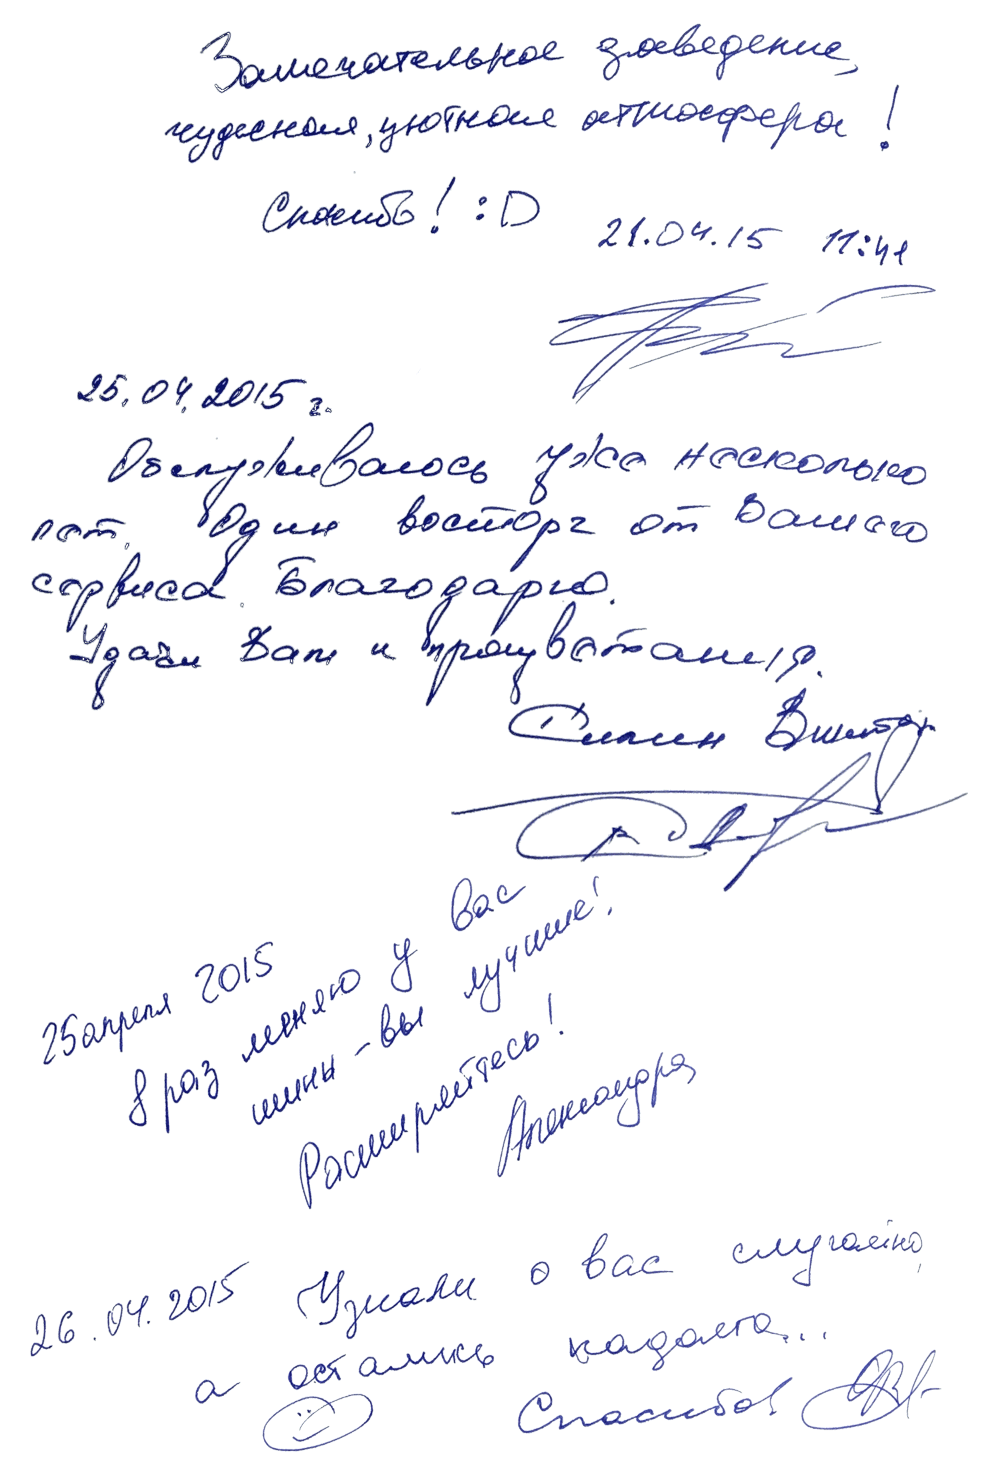 Замечательное заведение,
чудесная, уютная атмосфера!
Спасибо! :D
21.04.15 11:41
25.04.2015 г.
Обслуживаюсь уже несколько
лет. Один восторг от Вашего
сервиса. Благодарю.
Удачи Вам и процветания.
Силин
25 апреля 2015
8 раз меняю у вас
шины - вы лучшие!
Расширяйтесь!
Александра
26.04.2015 Узнали о вас случайно,
а остались надолго...
Спасибо!